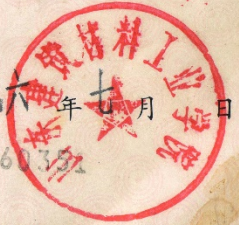 山东建筑材料工业学院
六年七月 日
60351